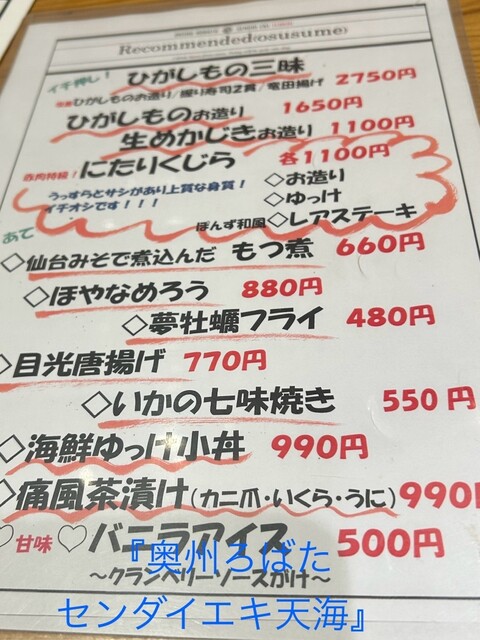 Recommended(osusume)
イチ押し！ ひがしもの三昧
ひがしものお造り/握り寿司2貫/竜田揚げ 2750円
ひがしものお造り 1650円
生めかじきお造り 1100円
赤肉特級！ にたりくじら 各1100円
うっすらとサシがあり上質な身質！ ◇お造り
イチオシです！！！ ◇ゆっけ
ぽんず和風◇レアステーキ
あて
◇仙台みそで煮込んだ もつ煮 660円
◇ほやなめろう 880円
◇夢牡蠣フライ 480円
◇目光唐揚げ 770円
◇いかの七味焼き 550円
◇海鮮ゆっけ小丼 990円
◇痛風茶漬け(カニ爪・いくら・うに) 990円
♡甘味♡バニラアイス 500円
～クランベリーソースがけ～
『奥州ろばた
センダイエキ天海』